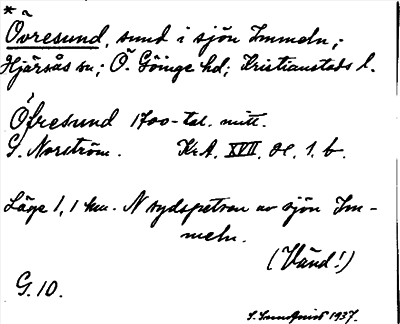 *
Övresund, sund i sjön Immeln;
Hjärsås sn; Ö. Göinge hd; Kristianstads l.
Öfresund 1700-tal. mitt.
G. Norström. Kr.A. XVII. 1. b.
Läge 1,1 km. N sydspetsen av sjön Im-
meln.
(Vänd!)
G. 10.
1937.